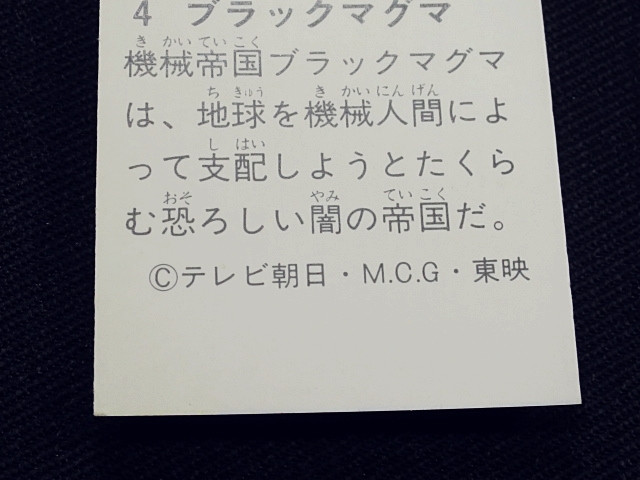 4 ブラックマグマ
機械帝国ブラックマグマ
は、地球を機械人間によ
って支配しようとたくら
む恐ろしい闇の帝国だ。
©テレビ朝日・M.C.G・東映